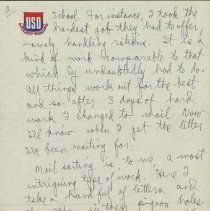 2.
USO
School. For instance, I took the
hardest job they had to offer
namely handling rations. It is a
kind of work comparable to that
which Cy undoubtedly had to do.
All things work out for the best
and so after 3 days of hard
work I changed to mail. Now
I'll know when I get the letter
I've been waiting for.
Mail sorting is to me a most
intriguing type of work. Here I
take a hand full of letters and
them in these pigeon holes.